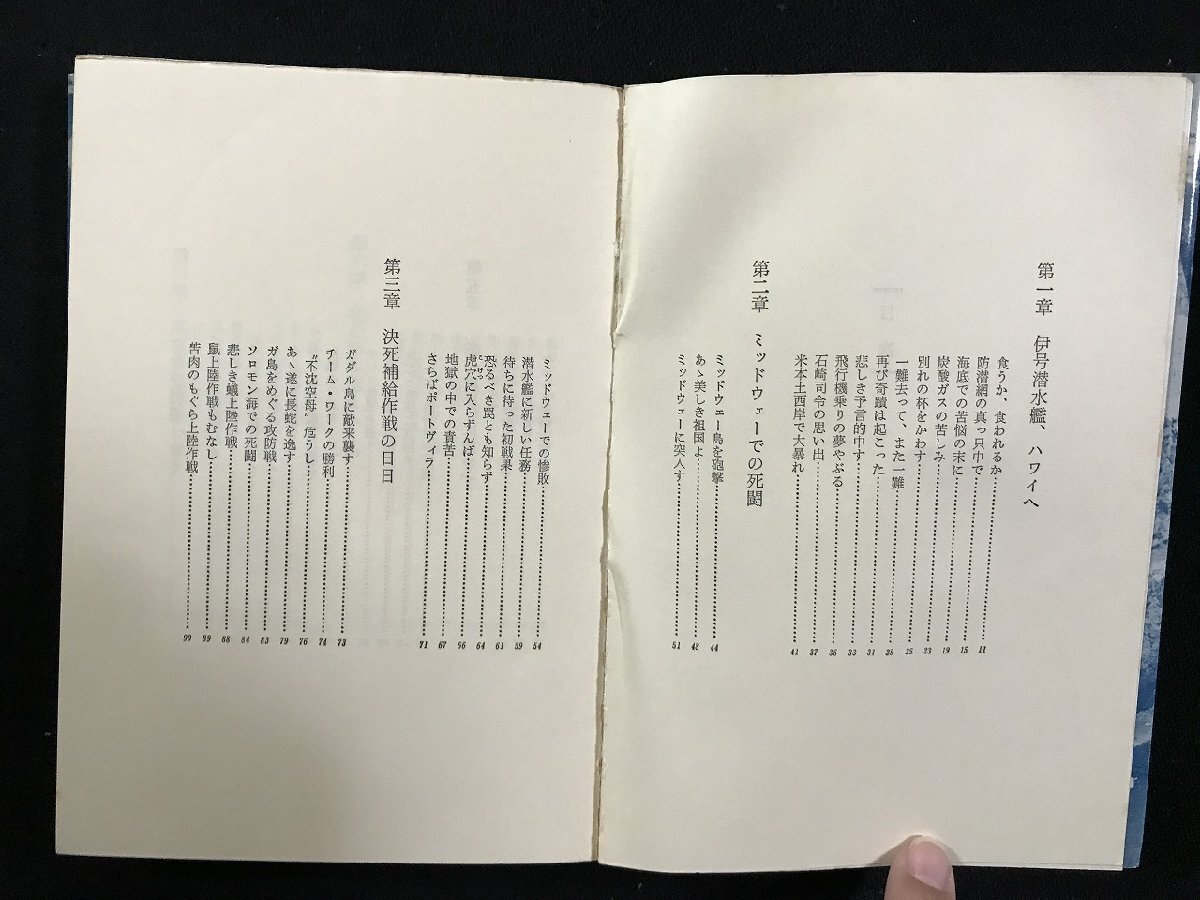 第一章　伊号潜水艦、ハワイへ
食うか、食われるか
防潜網の真っ只中で……11
海底での苦悩の末に……15
炭酸ガスの苦しみ……19
別れの杯をかわす……23
一難去って、また一難……25
再び奇蹟は起こった……28
悲しき予言的中す……31
飛行機乗りの夢やぶる……33
石崎司令の思い出……37
米本土西岸で大暴れ……41
第二章　ミッドウェーでの死闘
ミッドウェー島を砲撃……44
あゝ美しき祖国よ……48
ミッドウェーに突入す……51
ミッドウェーでの惨敗……54
潜水艦に新しい任務……59
待ちに待った初戦果……61
恐るべき罠とも知らず……64
虎穴に入らずんば……66
地獄の中での責苦……67
さらばポートヴィラ……71
第三章　決死補給作戦の日日
ガダル島に敵来襲す……73
チーム・ワークの勝利……74
"不沈空母"危うし……76
あゝ遂に長蛇を逸す……79
ガ島をめぐる攻防戦……83
ソロモン海での死闘……84
悲しき蟻上陸作戦……88
鼠上陸作戦もむなし……89
苦肉のもぐら上陸作戦……90